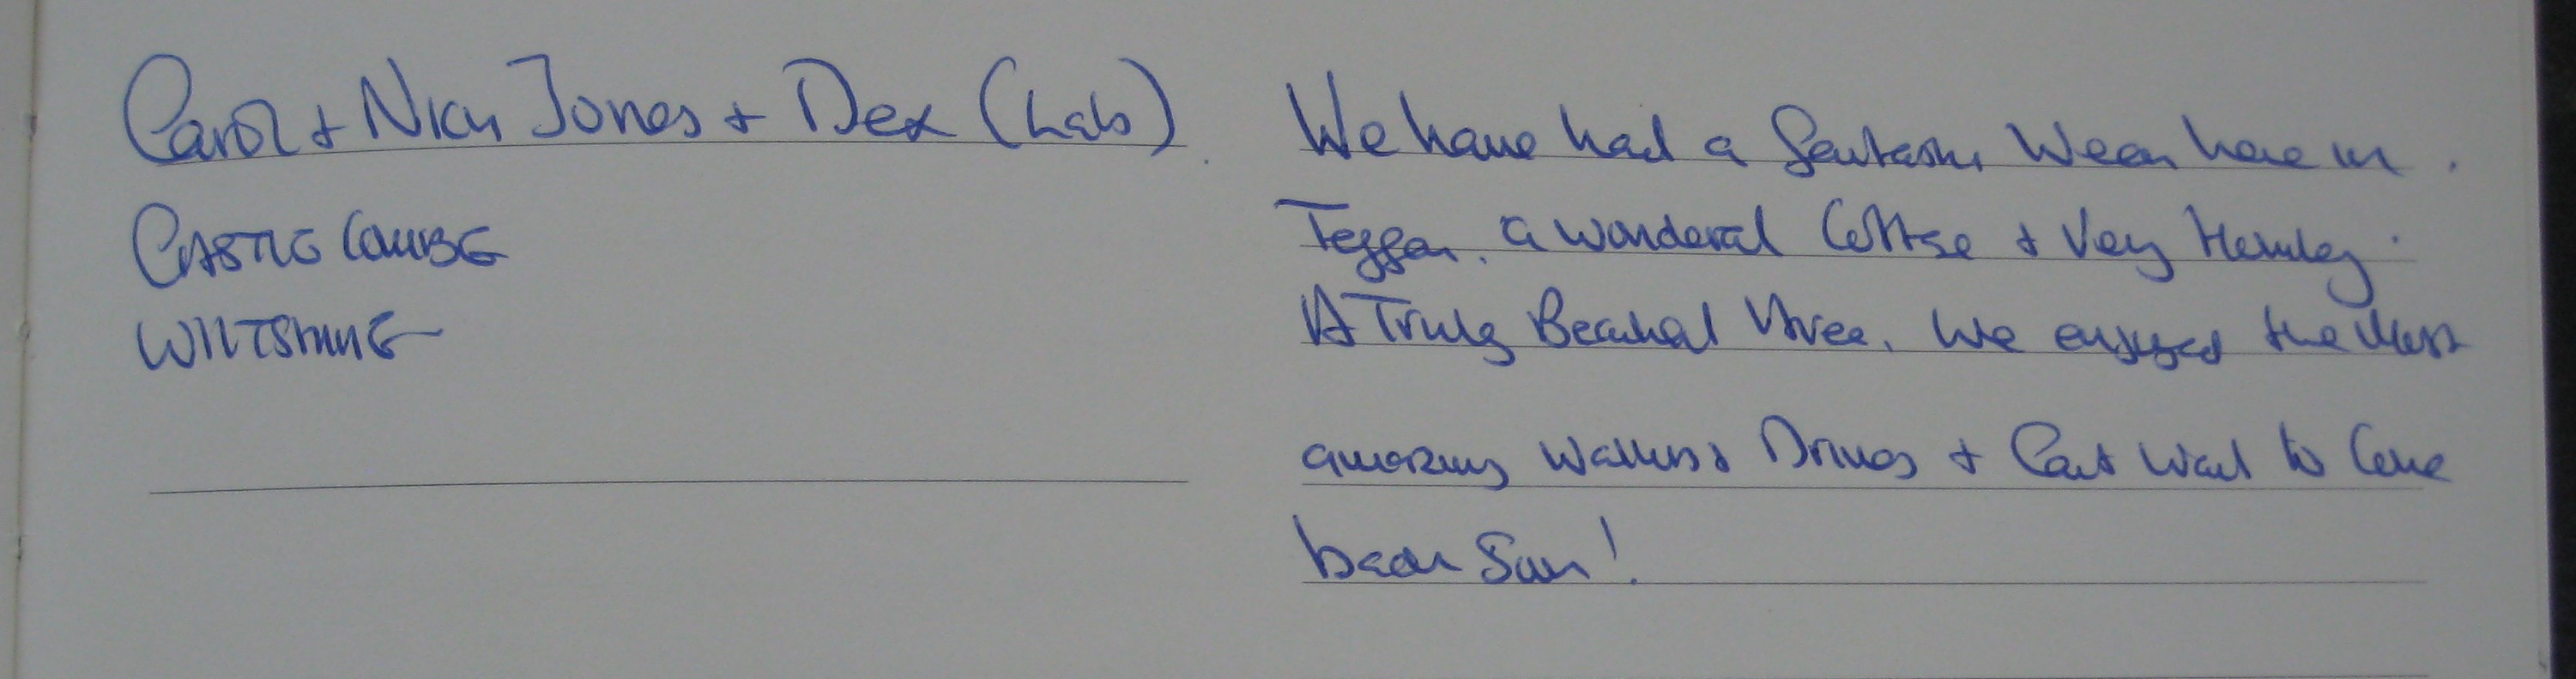 Carol + Nick Jones + Dex (Lab)
CASTLE COMBE
WILTSHIRE
We have had a fantastic Week here in
a wonderful Cottage + Very Homley.
A Truly Beautiful Area. We enjoyed the Most
amazing Walks & Drives + Cant Wait to Come
back Soon!